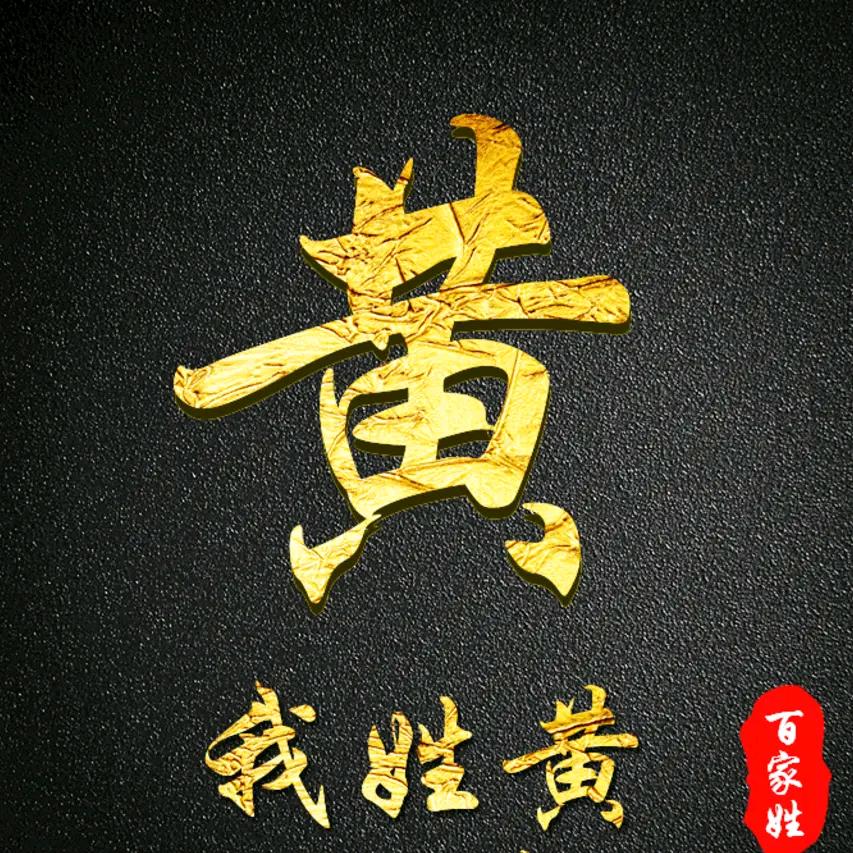 黄
我姓黄
百家姓